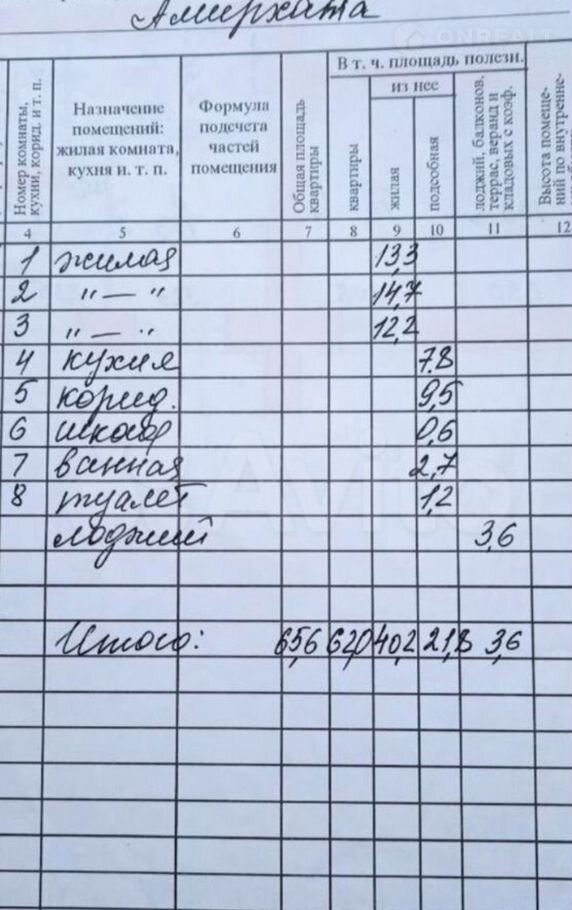 Амирхана
ONREALT
В т. ч. площадь полезн.
из нее
Номер комнаты,
кухни, корид. и т. п.
Назначение
помещений:
жилая комната,
кухня и т. п.
Формула
подсчета
частей
помещения
Общая площадь
квартиры
квартиры
жилая
подсобная
лоджий, балконов,
террас, веранд и
кладовых с коэф.
Высота помеще-
ний по внутренне-
4 5 6 7 8 9 10 11 12
1 жилая 13,3
2 "—" 14,7
3 "—" 12,2
4 кухня 7.8
5 корид. 9,5
6 шкаф 0,6
7 ванная 2,7
8 туалет 1,2
лоджий 3,6
Итого: 65,6 62,0 40,2 21,8 3,6
Avito